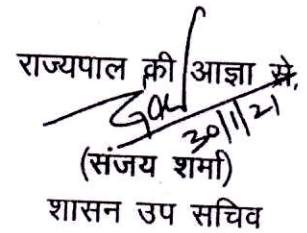 राज्यपाल की आज्ञा से,
30/1/21
(संजय शर्मा)
शासन उप सचिव